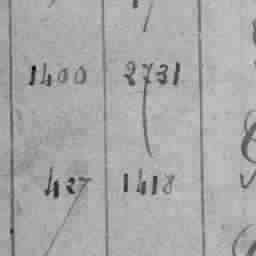 1400 2731
427 1418